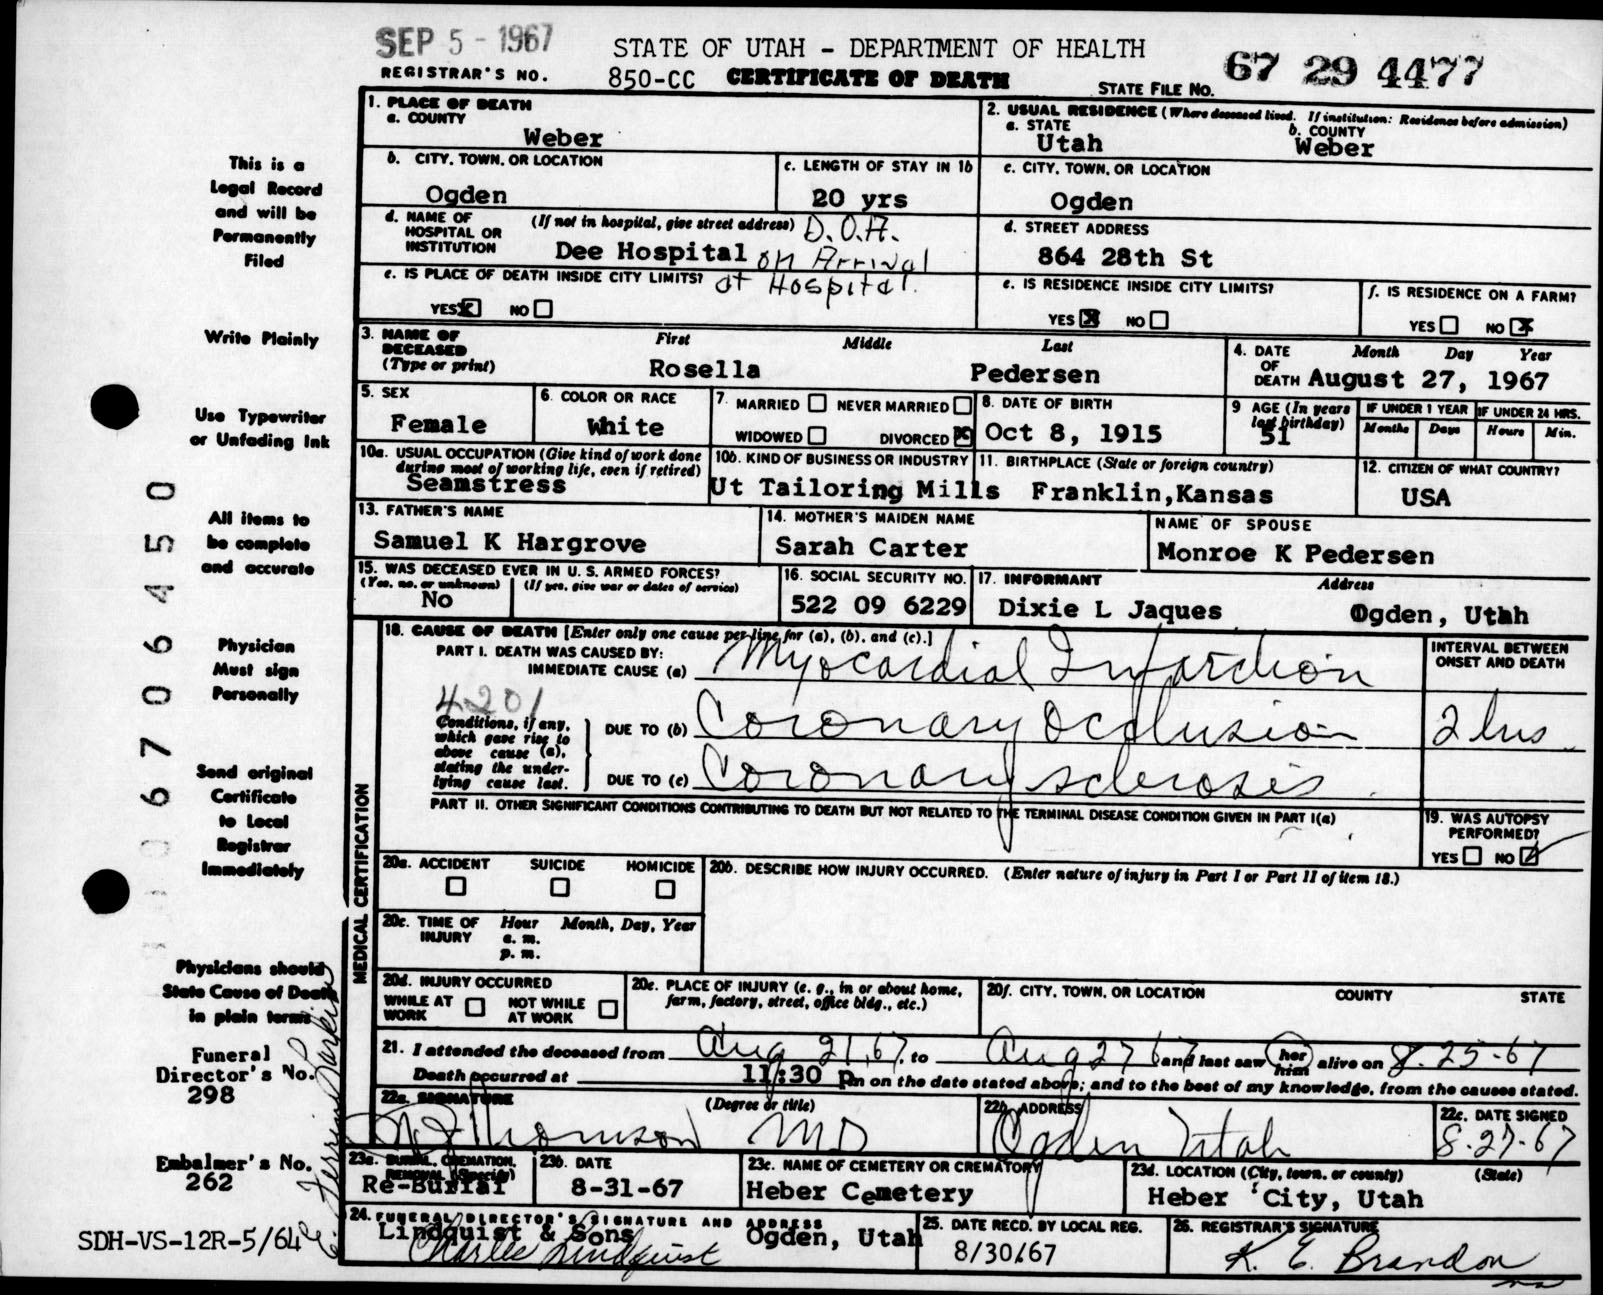 SEP 5 - 1967
STATE OF UTAH - DEPARTMENT OF HEALTH
REGISTRAR'S NO. 850-CC CERTIFICATE OF DEATH STATE FILE NO. 67 29 4477
This is a
Legal Record
and will be
Permanently
Filed
Write Plainly
Use Typewriter
or Unfading Ink
All items to
be complete
and accurate
Physician
Must sign
Personally
Send original
Certificate
to Local
Registrar
Immediately
Physicians should
State Cause of Death
in plain terms
Funeral
Director's No.
298
Embalmer's No.
262
SDH-VS-12R-5/64
06706450
1. PLACE OF DEATH
a. COUNTY
Weber
2. USUAL RESIDENCE (Where deceased lived. If institution: Residence before admission)
a. STATE b. COUNTY
Utah Weber
b. CITY, TOWN, OR LOCATION c. LENGTH OF STAY IN 1b c. CITY, TOWN, OR LOCATION
Ogden 20 yrs Ogden
d. NAME OF HOSPITAL OR INSTITUTION (If not in hospital, give street address) D.O.A.
Dee Hospital on Arrival
at Hospital.
d. STREET ADDRESS
864 28th St
e. IS PLACE OF DEATH INSIDE CITY LIMITS?
YES X NO
e. IS RESIDENCE INSIDE CITY LIMITS?
YES X NO
f. IS RESIDENCE ON A FARM?
YES NO X
3. NAME OF DECEASED (Type or print) First Middle Last
Rosella Pedersen
4. DATE OF DEATH Month Day Year
August 27, 1967
5. SEX
Female
6. COLOR OR RACE
White
7. MARRIED NEVER MARRIED
WIDOWED DIVORCED X
8. DATE OF BIRTH
Oct 8, 1915
9 AGE (In years last birthday)
51
IF UNDER 1 YEAR IF UNDER 24 HRS.
Months Days Hours Min.
10a. USUAL OCCUPATION (Give kind of work done during most of working life, even if retired)
Seamstress
10b. KIND OF BUSINESS OR INDUSTRY
Ut Tailoring Mills
11. BIRTHPLACE (State or foreign country)
Franklin,Kansas
12. CITIZEN OF WHAT COUNTRY?
USA
13. FATHER'S NAME
Samuel K Hargrove
14. MOTHER'S MAIDEN NAME
Sarah Carter
NAME OF SPOUSE
Monroe K Pedersen
15. WAS DECEASED EVER IN U. S. ARMED FORCES?
(Yes, no, or unknown) (If yes, give war or dates of service)
No
16. SOCIAL SECURITY NO.
522 09 6229
17. INFORMANT Address
Dixie L Jaques Ogden, Utah
MEDICAL CERTIFICATION
18. CAUSE OF DEATH [Enter only one cause per line for (a), (b), and (c).]
PART I. DEATH WAS CAUSED BY:
IMMEDIATE CAUSE (a) Myocardial Infarction
INTERVAL BETWEEN ONSET AND DEATH
4201
Conditions, if any, which gave rise to above cause (a), stating the underlying cause last.
DUE TO (b) Coronary Occlusion 2 hrs
DUE TO (c) Coronary sclerosis
PART II. OTHER SIGNIFICANT CONDITIONS CONTRIBUTING TO DEATH BUT NOT RELATED TO THE TERMINAL DISEASE CONDITION GIVEN IN PART I(a)
19. WAS AUTOPSY PERFORMED?
YES NO
20a. ACCIDENT SUICIDE HOMICIDE
20b. DESCRIBE HOW INJURY OCCURRED. (Enter nature of injury in Part I or Part II of item 18.)
20c. TIME OF INJURY Hour Month, Day, Year
a. m.
p. m.
20d. INJURY OCCURRED
WHILE AT WORK NOT WHILE AT WORK
20e. PLACE OF INJURY (e. g., in or about home, farm, factory, street, office bldg., etc.)
20f. CITY, TOWN, OR LOCATION COUNTY STATE
21. I attended the deceased from Aug 21, 67, to Aug 27 67 and last saw her him alive on 8-25-67
Death occurred at 11:30 p m on the date stated above; and to the best of my knowledge, from the causes stated.
22a. SIGNATURE (Degree or title)
Thomson MD
22b. ADDRESS
Ogden Utah
22c. DATE SIGNED
8-27-67
23a. BURIAL, CREMATION, REMOVAL (Specify)
Re-Burial
23b. DATE
8-31-67
23c. NAME OF CEMETERY OR CREMATORY
Heber Cemetery
23d. LOCATION (City, town, or county) (State)
Heber City, Utah
24. FUNERAL DIRECTOR'S SIGNATURE AND ADDRESS
Lindquist & Sons Ogden, Utah
Charles Lindquist
25. DATE RECD. BY LOCAL REG.
8/30/67
26. REGISTRAR'S SIGNATURE
K. E. Brandon